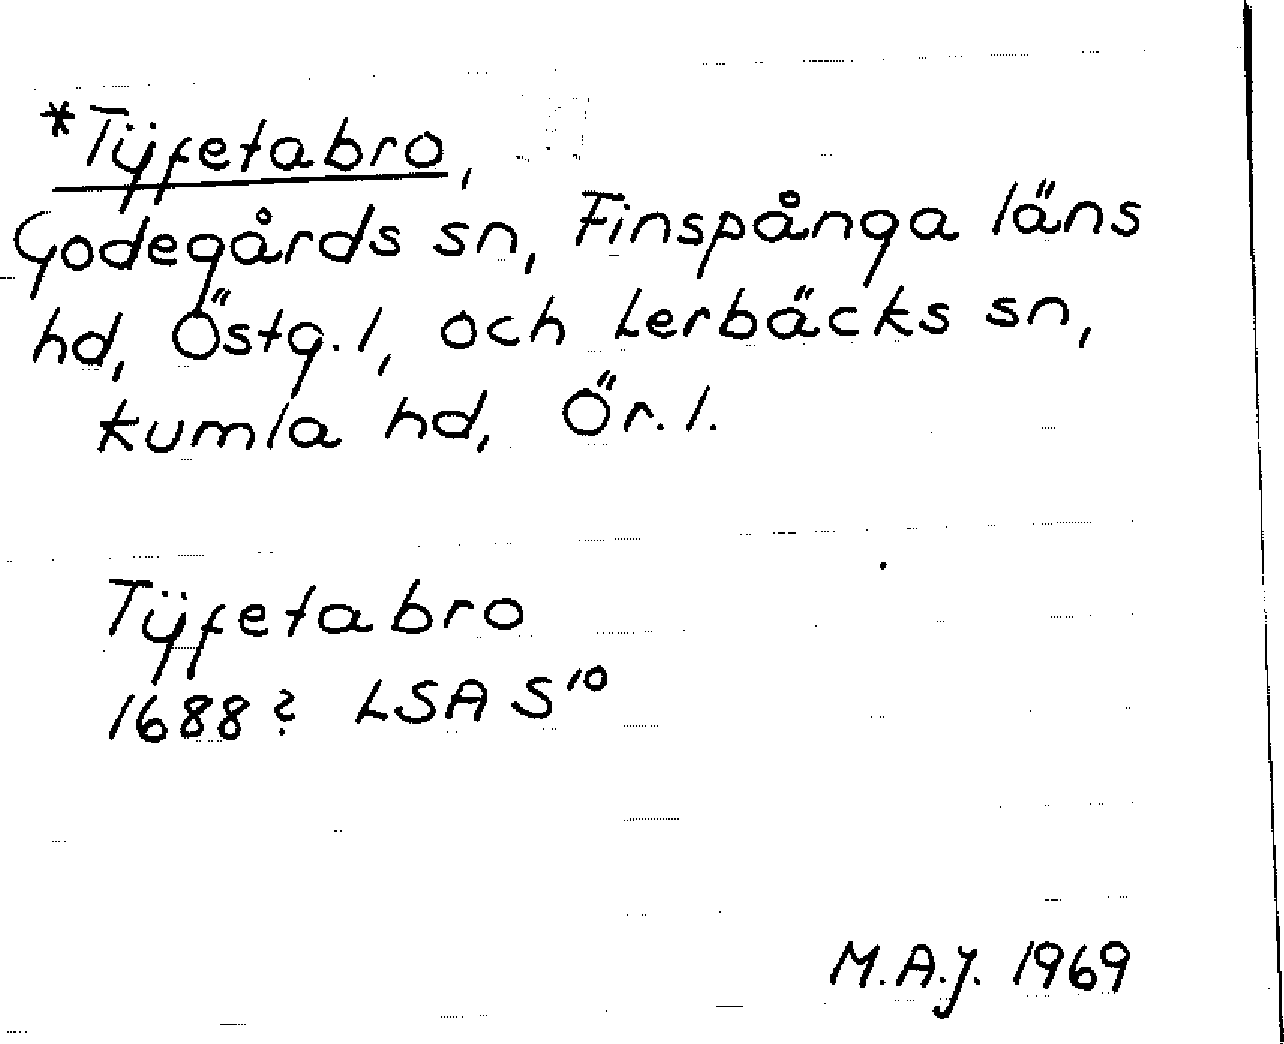 *Tÿfetabro,
Godegårds sn, Finspånga läns
hd, Östg.l, och Lerbäcks sn,
Kumla hd, Ör.l.
Tÿfetabro
1688? LSA S¹⁰
M.A.J. 1969